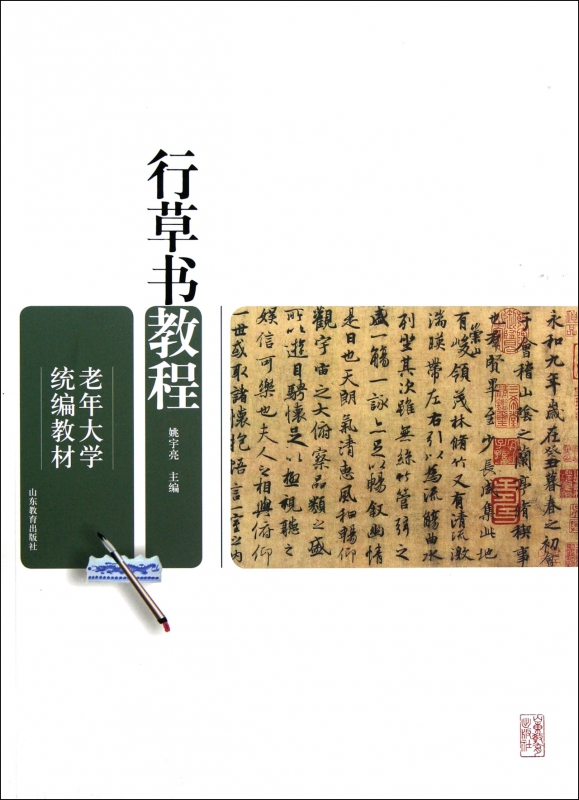 行草书教程
姚宇亮 主编
老年大学
统编教材
山东教育出版社
永和九年歲在癸丑暮春之初會
于會稽山陰之蘭亭脩稧事
也羣賢畢至少長咸集此地
有崇山峻領茂林脩竹又有清流激
湍暎帶左右引以為流觴曲水
列坐其次雖無絲竹管弦之
盛一觴一詠亦足以暢叙幽情
是日也天朗氣清惠風和暢仰
觀宇宙之大俯察品類之盛
所以遊目騁懷足以極視聽之
娛信可樂也夫人之相與俯仰
一世或取諸懷抱悟言一室之内
山東教育出版社